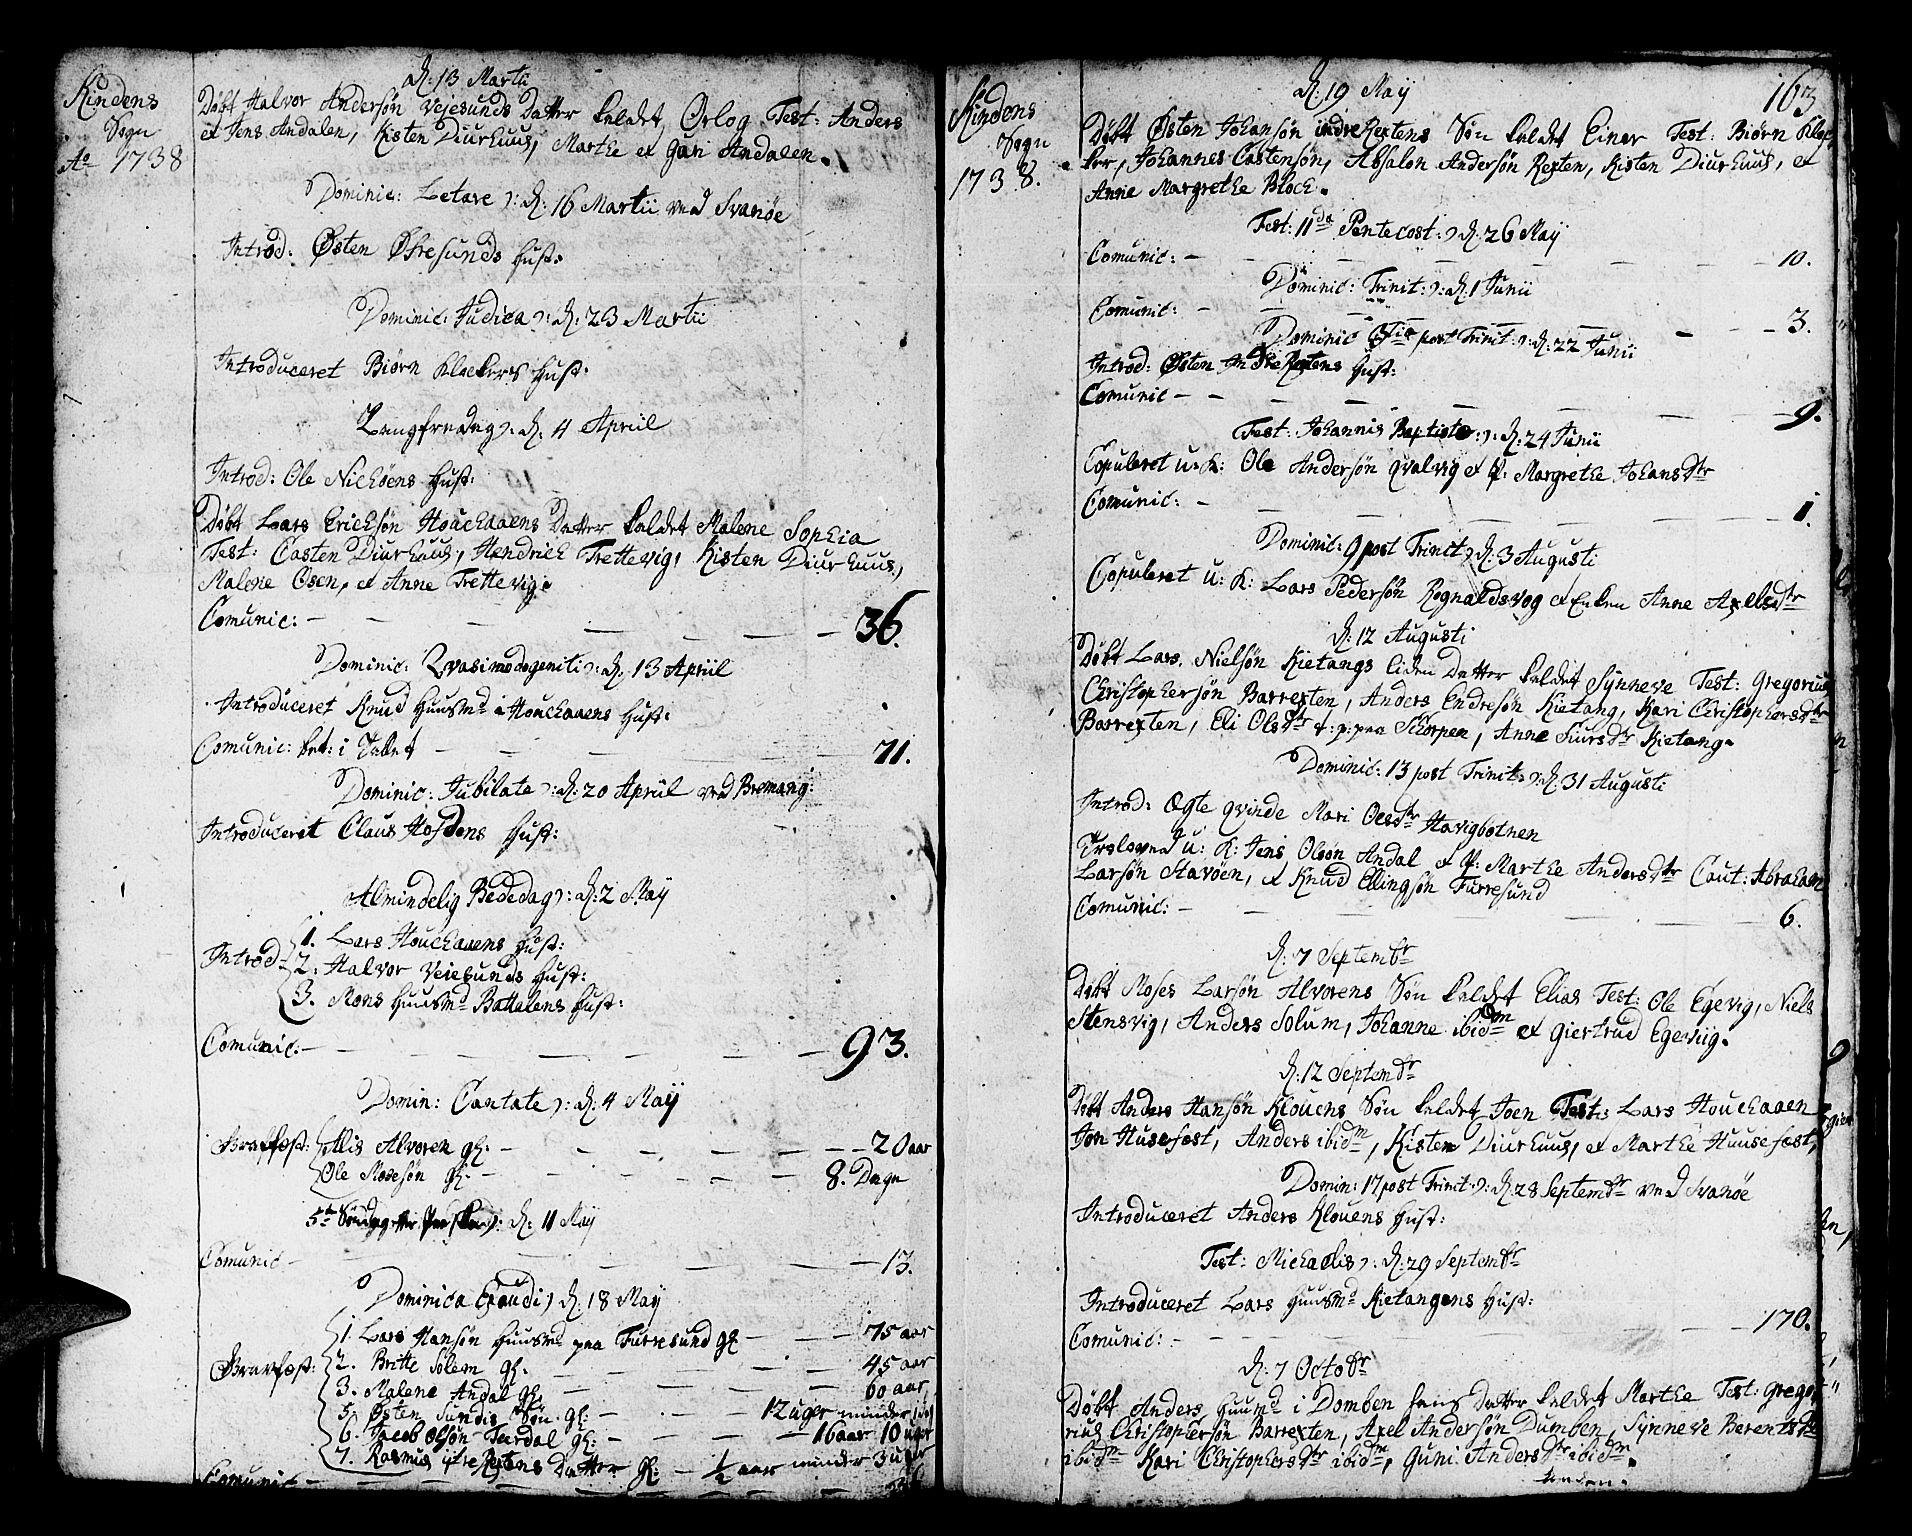 Kindens
Sogn
Ao 1738
d: 13 Martii
Døbt Halvor Andersøn Vejesunds Datter kaldet Orlog Test: Anders
et Jens Andalen, Kisten Diurhuus, Marthe et Gari Andalen.
Dominic: Letare ɔ: d: 16 Martii ved Svanøe
Introd: Østen Øfresunds Hust:
Dominic: Judica ɔ: d: 23 Martii
Introduceret Biørn Klockers Hust:
Langfredag ɔ: d. 4 April
Introd: Ole Nichøens Hust:
Døbt Lars Erichsøn Houchaaens Datter kaldet Malene Sophia
Test: Casten Diurhuus, Hendrich Trettevig, Kisten Diurhuus,
Malene Osen, et Anne Trettevig.
Comunic: 36.
Dominic: Qvasimodogeniti ɔ: d. 13 April
Introduceret Knud Huusmd i Houchaaens Hust:
Comunic: ket: i Tallet 71.
Dominic: Jubilate ɔ: d: 20 April ved Bremang:
Introduceret Claus Hosdens Hust:
Almindelig Bededag ɔ: d: 2 May
Introd 1. Lars Houchaaens Hust:
2. Halvor Vejesunds Hust:
3. Mons Huusmd Battalens Hust:
Comunic: 93.
Domin: Cantate ɔ: d: 4 May
Gravfæst: Allis Alvoren gl: 20 aar
Ole Mosesøn gl. 8. Dage
5te Søndag efter Paaske ɔ: d: 11 May
Comunic 13.
Dominica Exaudi ɔ d: 18 May
Gravfæst: 1. Lars Hansøn Huusmd paa Furresund gl 75 aar
2. Britte Solem gl. 45 aar
3. Malene Andal gl. 60 aar
5. Østen Sunds Søn gl: 12 uger minder
6. Jacob Olsøn Tardal gl: 16 aar 10 uger
7. Rasmus Ytre Rextens Datter gl: ½ aar minder 3 uger
Comunic
163
Kindens
Sogn
1738.
d: 19 May
Døbt Østen Johansøn indre Rextens Søn kaldet Einer Test: Biørn Kloc
ker, Johannes Castensøn, Absalon Andersøn Rexten, Kisten Diurhuus, et
Anne Margrethe Bloch.
Fest: 11da Pentecost: ɔ d. 26 May
Comunic: 10.
Dominic: Trinit: ɔ: d. 1 Junii
Comunic: 3.
Dominic 3tia post Trinit: ɔ: d: 22 Junii
Introd: Østen Indre Rextens Hust:
Comunic 9.
Fest: Johannis Baptistæ: ɔ: d: 24 Junii
Copuleret u: K: Ole Andersøn Qvalvig et P: Margrethe Johansdtr
Comunic: 1.
Dominic: 9 post Trinit ɔ d: 3 Augusti
Copuleret u: K: Lars Pedersøn Rognaldsvog et Enken Anne Axelsdtr
d: 12 Augusti
Døbt Lars. Nielsøn Kietangs liden Datter kaldet Synneve Test: Gregorius
Christophersøn Barrexten, Anders Endresøn Kietang, Kari Christophersdtr
Barrexten, Eli Olsdtr paa Skorpen, Anne Siursdtr Kietang.
Dominic: 13 post Trinit: ɔ: d: 31 Augusti
Introd: Ægte qvinde Mari Olsdtr Havigbotnen
Troloved u: K: Jens Olsøn Andal et P: Marthe Andersdtr Caut: Abraham
Larsøn Stavøen, et Knud Ellingsøn Furresund
Comunic: 6.
d: 7 Septembr
Døbt Moses Larsøn Alvorens Søn kaldet Elias Test: Ole Egevig, Niels
Stensvig, Anders Solum, Johanne ibidm et Giertrud Egeviig.
d: 12 Septembr
Døbt Anders Hansøn Klovens Søn kaldet Joen Test: Lars Houchaaen
Jon Husefæst, Anders ibidm, Kisten Diurhuus, et Marthe Huusefæst,
Domin: 17 post Trinit. ɔ: d: 28 Septembr ved Svanøe
Introduceret Anders Klovens Hust:
Fest: Michaelis ɔ: d: 29 Septembr
Introduceret Lars Huusmd Kietangens Hust:
Comunic: 170.
d: 7 Octobr
Døbt Anders Huusmd i Domben hans Datter kaldet Marthe Test: Grego
rius Christophersøn Barrexten, Axel Andersøn Dumben, Synneve Berentsdtr
ibidm Kari Christophersdtr ibidm, Guni Andersdtr ibidm.